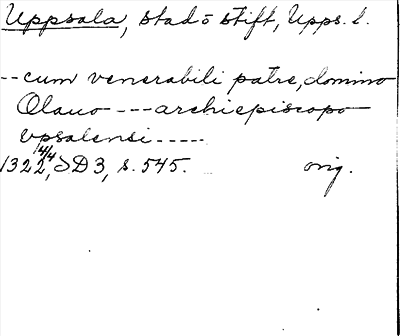 Uppsala, stad o stift, Upps. l.
-- cum venerabili patre, domino
Olauo --- archiepiscopo
vpsalensi -----
1322 4/4, SD 3, s. 545. orig.